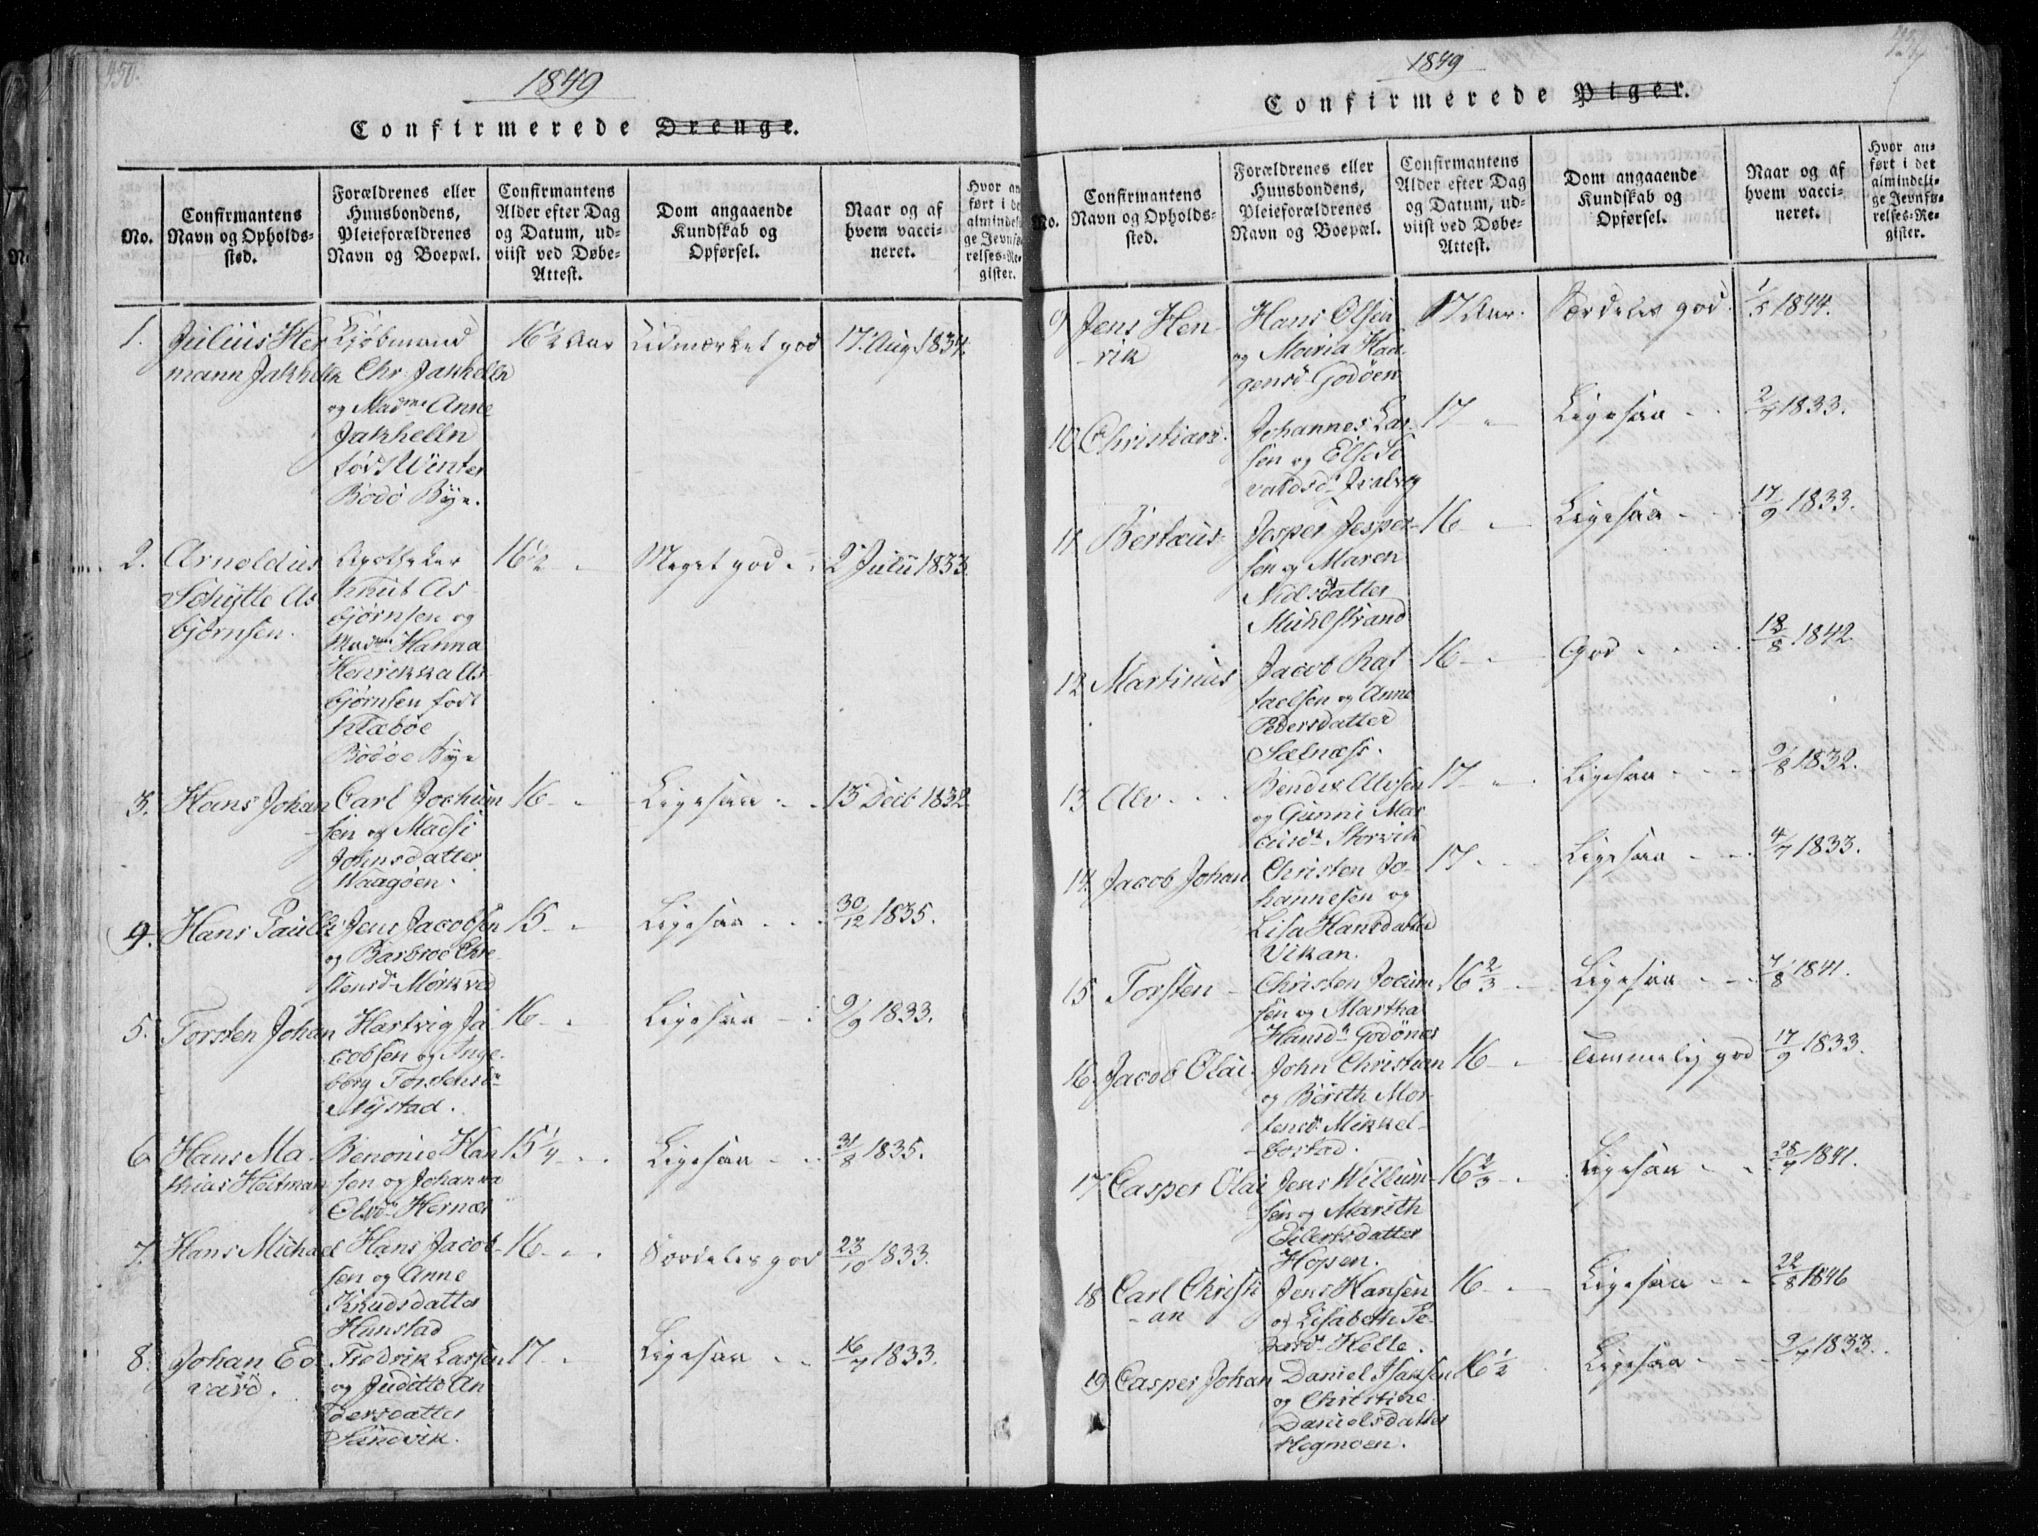 450.
1849
Confirmerede Drenge.
No.
Confirmantens
Navn og Opholds-
sted.
Forældrenes eller
Huusbondens,
Pleieforældrenes
Navn og Boepæl.
Confirmantens
Alder efter Dag
og Datum, ud-
viist ved Døbe-
Attest.
Dom angaaende
Kundskab og
Opførsel.
Naar og af
hvem vacci-
neret.
Hvor an
ført i de
almindel
ge Jevnfø
relses-Re-
gister.
1. Julius Her
mann Jakhelln
Kjöbmand
Chr. Jakhelln
og Mad.me Anne
Jakhelln
fød Winter
Bodö Bye.
16 1/2 Aar
Udmærket god
17 Aug 1834.
2. Arnoldus
Schytte As
bjørnsen.
Apotheker
Knut As
bjørnsen og
Mad.me Hanna
Henrikka As
bjørnsen född
Klæboe
Bodöe Bye
16 1/2 "
Meget god
2 Julii 1833.
3. Hans Johan
Carl Jochum
sen og Madsi
Johnsdatter
Waagöen.
16 "
Ligesaa
13 Decb 1832
4. Hans Paulli
Jens Jacobsen
og Barbroe Chri
stensd. Mörkved
15 "
Ligesaa
30/12 1835.
5. Torsten Johan
Hartvig Ja
cobsen og Inge-
borg Torstensd.
Nystad.
16 "
Ligesaa
9/9 1833.
6. Hans Ma-
thias Heitman
Benonie Han
sen og Johanna
Olsd. Hernæs
15 1/4
Ligesaa
31/8 1835.
7. Hans Michael
Hans Jacob-
sen og Anne
Knudsdatter
Hunstad
16 "
Særdeles god
23/10 1833.
8. Johan Ed
vard.
Fredrik Larsen
og Juditte An
dersdatter
Sandvik.
17 "
Ligesaa
16/7 1833.
1849
Confirmerede Piger.
No.
Confirmantens
Navn og Opholds-
sted.
Forældrenes eller
Huusbondens,
Pleieforældrenes
Navn og Boepæl.
Confirmantens
Alder efter Dag
og Datum, ud-
viist ved Døbe-
Attest.
Dom angaaende
Kundskab og
Opførsel.
Naar og af
hvem vacci-
neret.
Hvor an-
ført i det
almindeli-
ge Jevnfø-
relses-Re-
gister.
9 Jens Hen-
-rik
Hans Olsen
og Maria Haa
gensd. Godöen
17 Aar.
Særdeles god.
1/5 1844.
10 Christian
Johannes Lar-
sen og Else Si
vardsd.
17 "
Ligesaa
2/7 1833.
11 Bertæus
Jesper Jesper-
sen og Maren
Nilsdatter
Muhlstrand
16 "
Ligesaa
17/9 1833.
12 Martinus
Jacob Raf
faelsen og Anne
Pedersdatter
Sælnæss.
16 "
God
18/8 1842
13 Alv
Bendix Alvsen
og Gunni Mar
cusd. Storvik
17 "
Ligesaa
9/8 1832.
14. Jacob Johan
Christen Jo-
hannesen og
Lisa Hansdatter
Vikan.
17
Ligesaa
4/7 1833.
15 Torsten
Christen Jocum
sen og Martha
Hansd. Godönæs
16 2/3
Ligesaa
7/8 1841.
16. Jacob Olai
John Christian
og Berith Mor
tensd. Mikkel-
-bostad.
16 "
Temmelig god
17/9 1833.
17 Casper Olai
Jens Willum-
sen og Marith
Eilertsdatter
Hopen.
16 2/3
Ligesaa
28/7 1841.
18 Carl Christi
-an
Jens Hansen
og Lisabeth Pe-
dersd. Helle.
16 "
Ligesaa
22/8 1846
19 Casper Johan
Daniel Isaksen
og Christine
Danielsdatter
Hogmoen.
16 1/2
Ligesaa
9/7 1833.